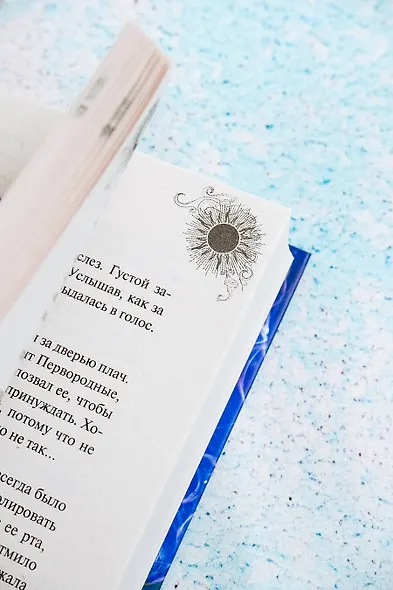 слез. Густой за-
Услышав, как за
ыдалась в голос.
за дверью плач.
ит Первородные,
позвал ее, чтобы
принуждать. Хо-
потому что не
о не так...
всегда было
олировать
ее рта,
тмило
жала